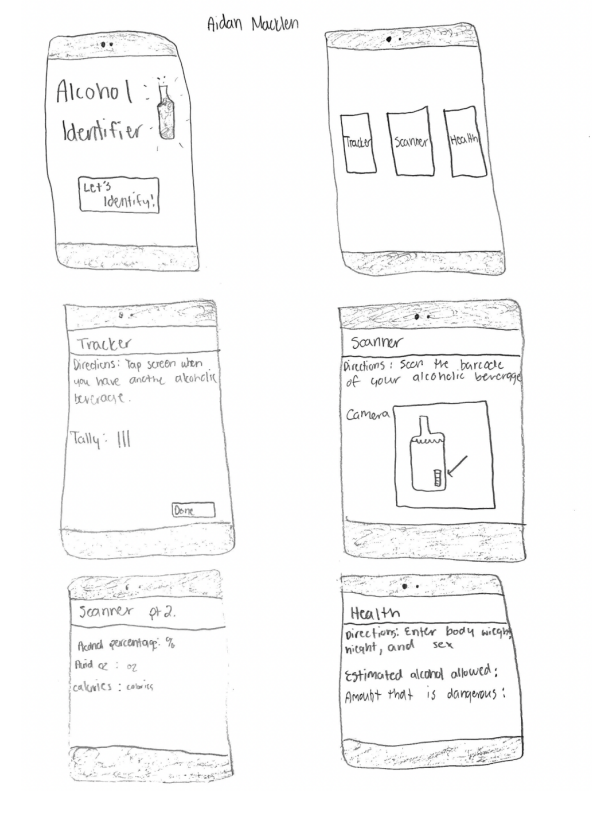 Aidan Macklen
Alcohol :
Identifier
Let's
Identify!
Tracker
Scanner
Health
Tracker
Directions: Tap screen when
you have another alcoholic
beverage.
Tally: |||
Done
Scanner
Directions: Scan the barcode
of your alcoholic beverage
Camera
Scanner pt2.
Alcohol percentage: %
fluid oz : oz
calories : calories
Health
Directions: Enter body wieght,
hieght, and sex
Estimated alcohol allowed:
Amount that is dangerous: